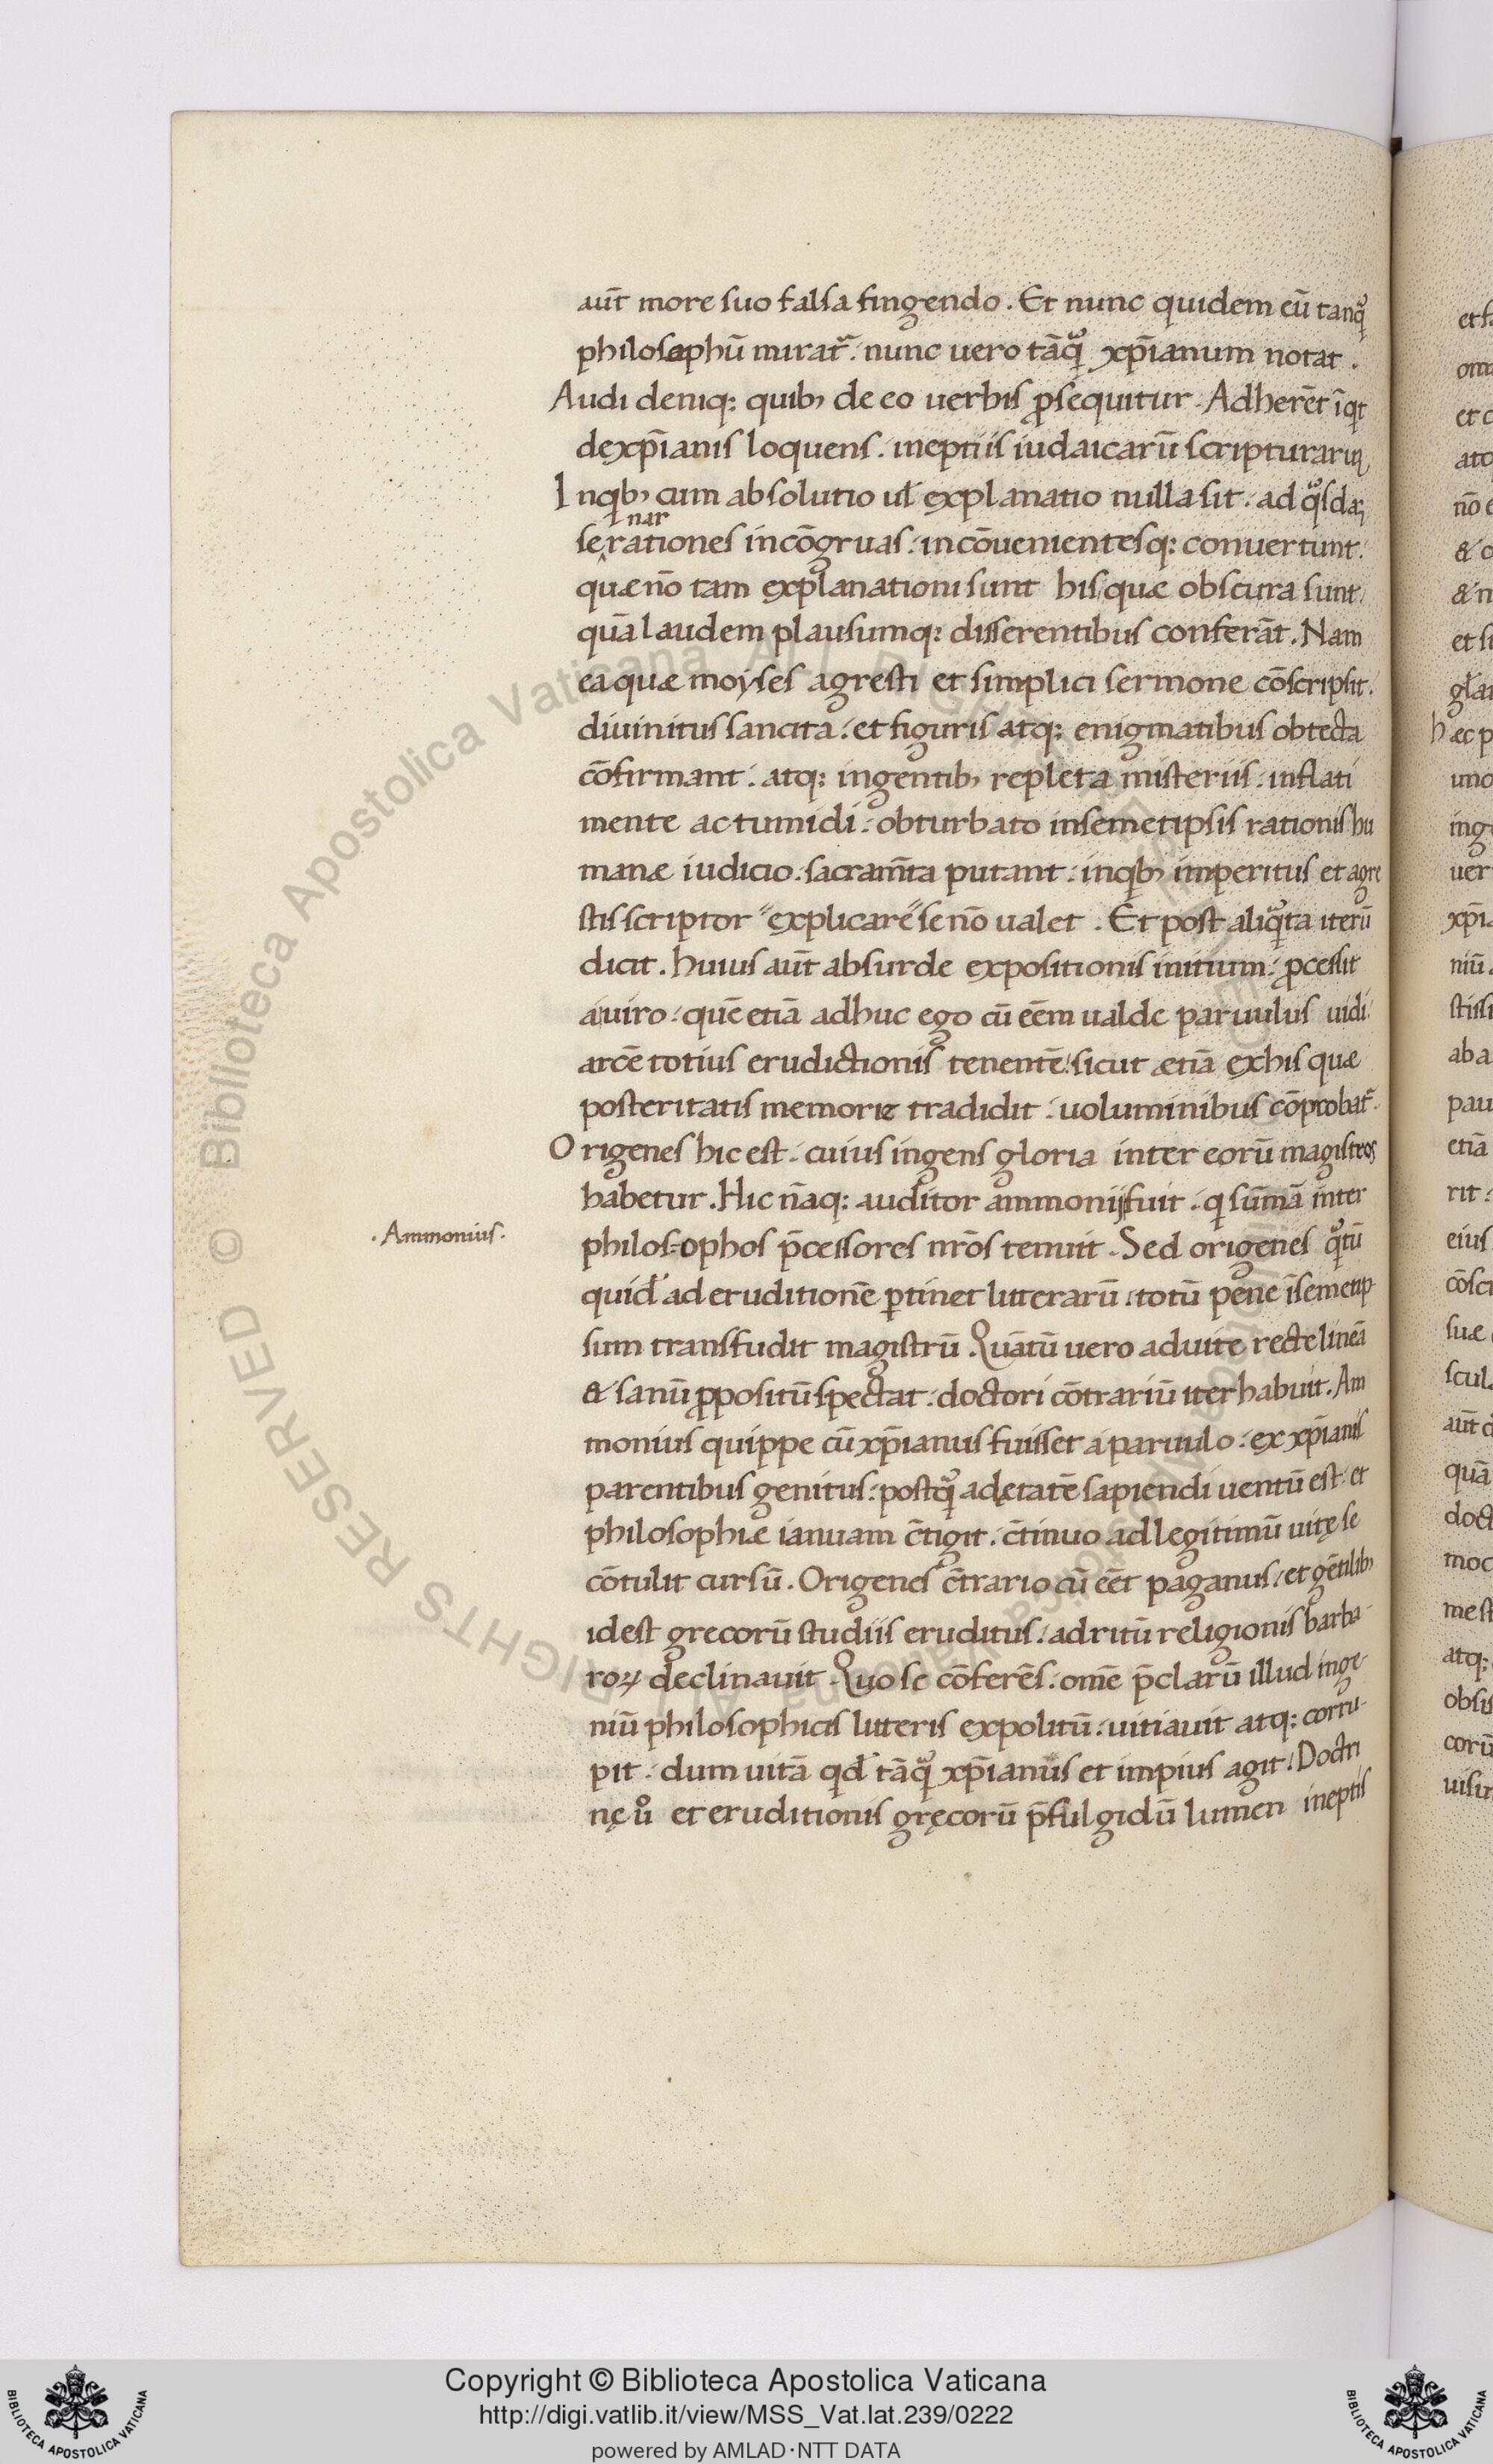 aut̄ more suo falsa fingendo . Et nunc quidem eū tanqͣ
philosophū mirat᷑ . nunc uero tāqͣ xp̄ianum notat .
Audi deniq; quibꝫ de eo uerbis ꝓsequitur . Adherēt īqt
dexp̄ianis loquens . ineptiis iudaicarū scripturarꝝ
Inqbꝫ cum absolutio ul̄ explanatio nulla sit . ad qͣsdaꝫ
se rationes incōgruas . incōuenientesq; conuertunt .
nar
quæ nō tam explanationi sunt his quæ obscura sunt .
quā laudem plausumq; disserentibus conferāt . Nam
ea quæ moyses agresti et simplici sermone cōscripsit .
diuinitus sancita . et figuris atq; enigmatibus obtecta
cōfirmant . atq; ingentibꝫ repleta misteriis . inflati
mente ac tumidi . obturbato insemetipsis rationis hu
manæ iudicio . sacram̄ta putant . inqbꝫ imperitus et agre
stis scriptor "explicare" se nō ualet . Et post aliqͣta iterū
dicit . huius aut̄ absurde expositionis initium . ꝓcessit
a uiro . quē etiā adhuc ego cū eēm ualde paruulus uidi
arcē totius eruditionis tenentē . sicut ætiā exhis quæ
posteritatis memoriæ tradidit . uoluminibus cōprobat᷑ .
Origenes hic est . cuius ingens gloria inter eorū magistros
habetur . Hic n̄aq; auditor ammonij fuit . q sūmā inter
philosophos p̄cessores nr̄os tenuit . Sed origenes qͣtū
quid̄ ad eruditionē ꝑtinet litterarū . totū pene īsemetip
sum transfudit magistrū . Quātū uero aduite recte lineā
& sanū ꝓpositū spectat . doctori cōtrariū iter habuit . Am
monius quippe cū xp̄ianus fuisset a paruulo . ex xp̄ianis
parentibus genitus . postqͣ adętatē sapiendi uentū est . et
philosophiæ ianuam c̄tigit . c̄tinuo ad legitimū uitę se
cōtulit cursū . Origenes c̄trario cū eēt paganus . et gētilibꝫ
idest grecorū studiis eruditus . ad ritū religionis barba
roꝝ declinauit . Quo se cōferēs . om̄e p̄clarū illud inge
niū philosophicis litteris expolitū . uitiauit atq; corru
pit . dum uitā qd̄ tāqͣ xp̄ianus et impius agit . Doctri
nę uͦ et eruditionis gręcorū p̄fulgidū lumen ineptis
. Ammonius .
Copyright © Biblioteca Apostolica Vaticana
http://digi.vatlib.it/view/MSS_Vat.lat.239/0222
powered by AMLAD·NTT DATA